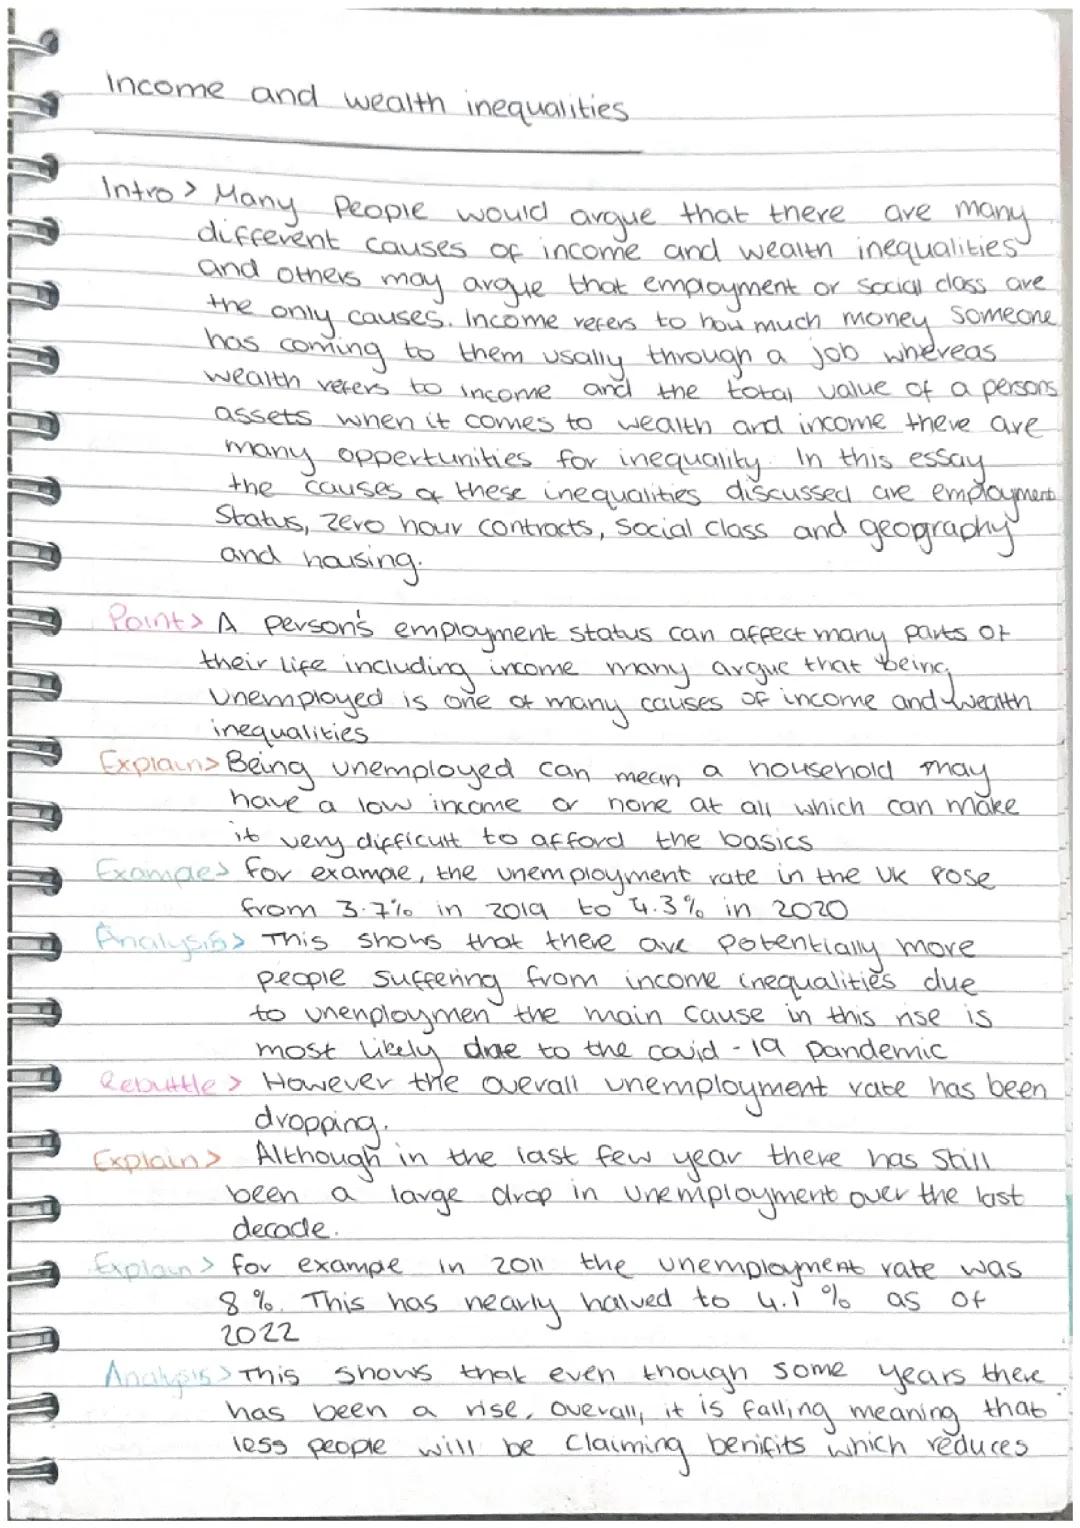 Income and wealth inequalities
Intro > Many People would argue that there are many
different causes of income and wealth inequalities
and others may argue that employment or social class are
the only causes. Income refers to how much money someone
has coming to them usally through a job whereas
wealth refers to income and the total value of a persons
assets when it comes to wealth and income there are
many oppertunities for inequality. In this essay
the causes of these inequalities discussed are employment
Status, Zero hour contracts, Social Class and geography
and housing.
Point > A person's employment status can affect many parts of
their life including income many argue that being
Unemployed is one of many causes of income and wealth
inequalities
Explain > Being unemployed can mean a household may
have a low income or none at all which can make
it very difficult to afford the basics
Example > for example, the unemployment rate in the UK rose
from 3.7% in 2019 to 4.3% in 2020
Analysis > This shows that there are potentially more
people suffering from income inequalities due
to unenploymen the main cause in this rise is
most likely due to the covid - 19 pandemic
Rebuttle > However the overall unemployment rate has been
dropping.
Explain > Although in the last few year there has Still
been a large drop in unemployment over the last
decade.
Explain > for example in 2011 the unemployment rate was
8%. This has nearly halved to 4.1% as of
2022
Analysis > This shows that even though some years there
has been a rise, overall, it is falling meaning that
less people will be claiming benifits which reduces